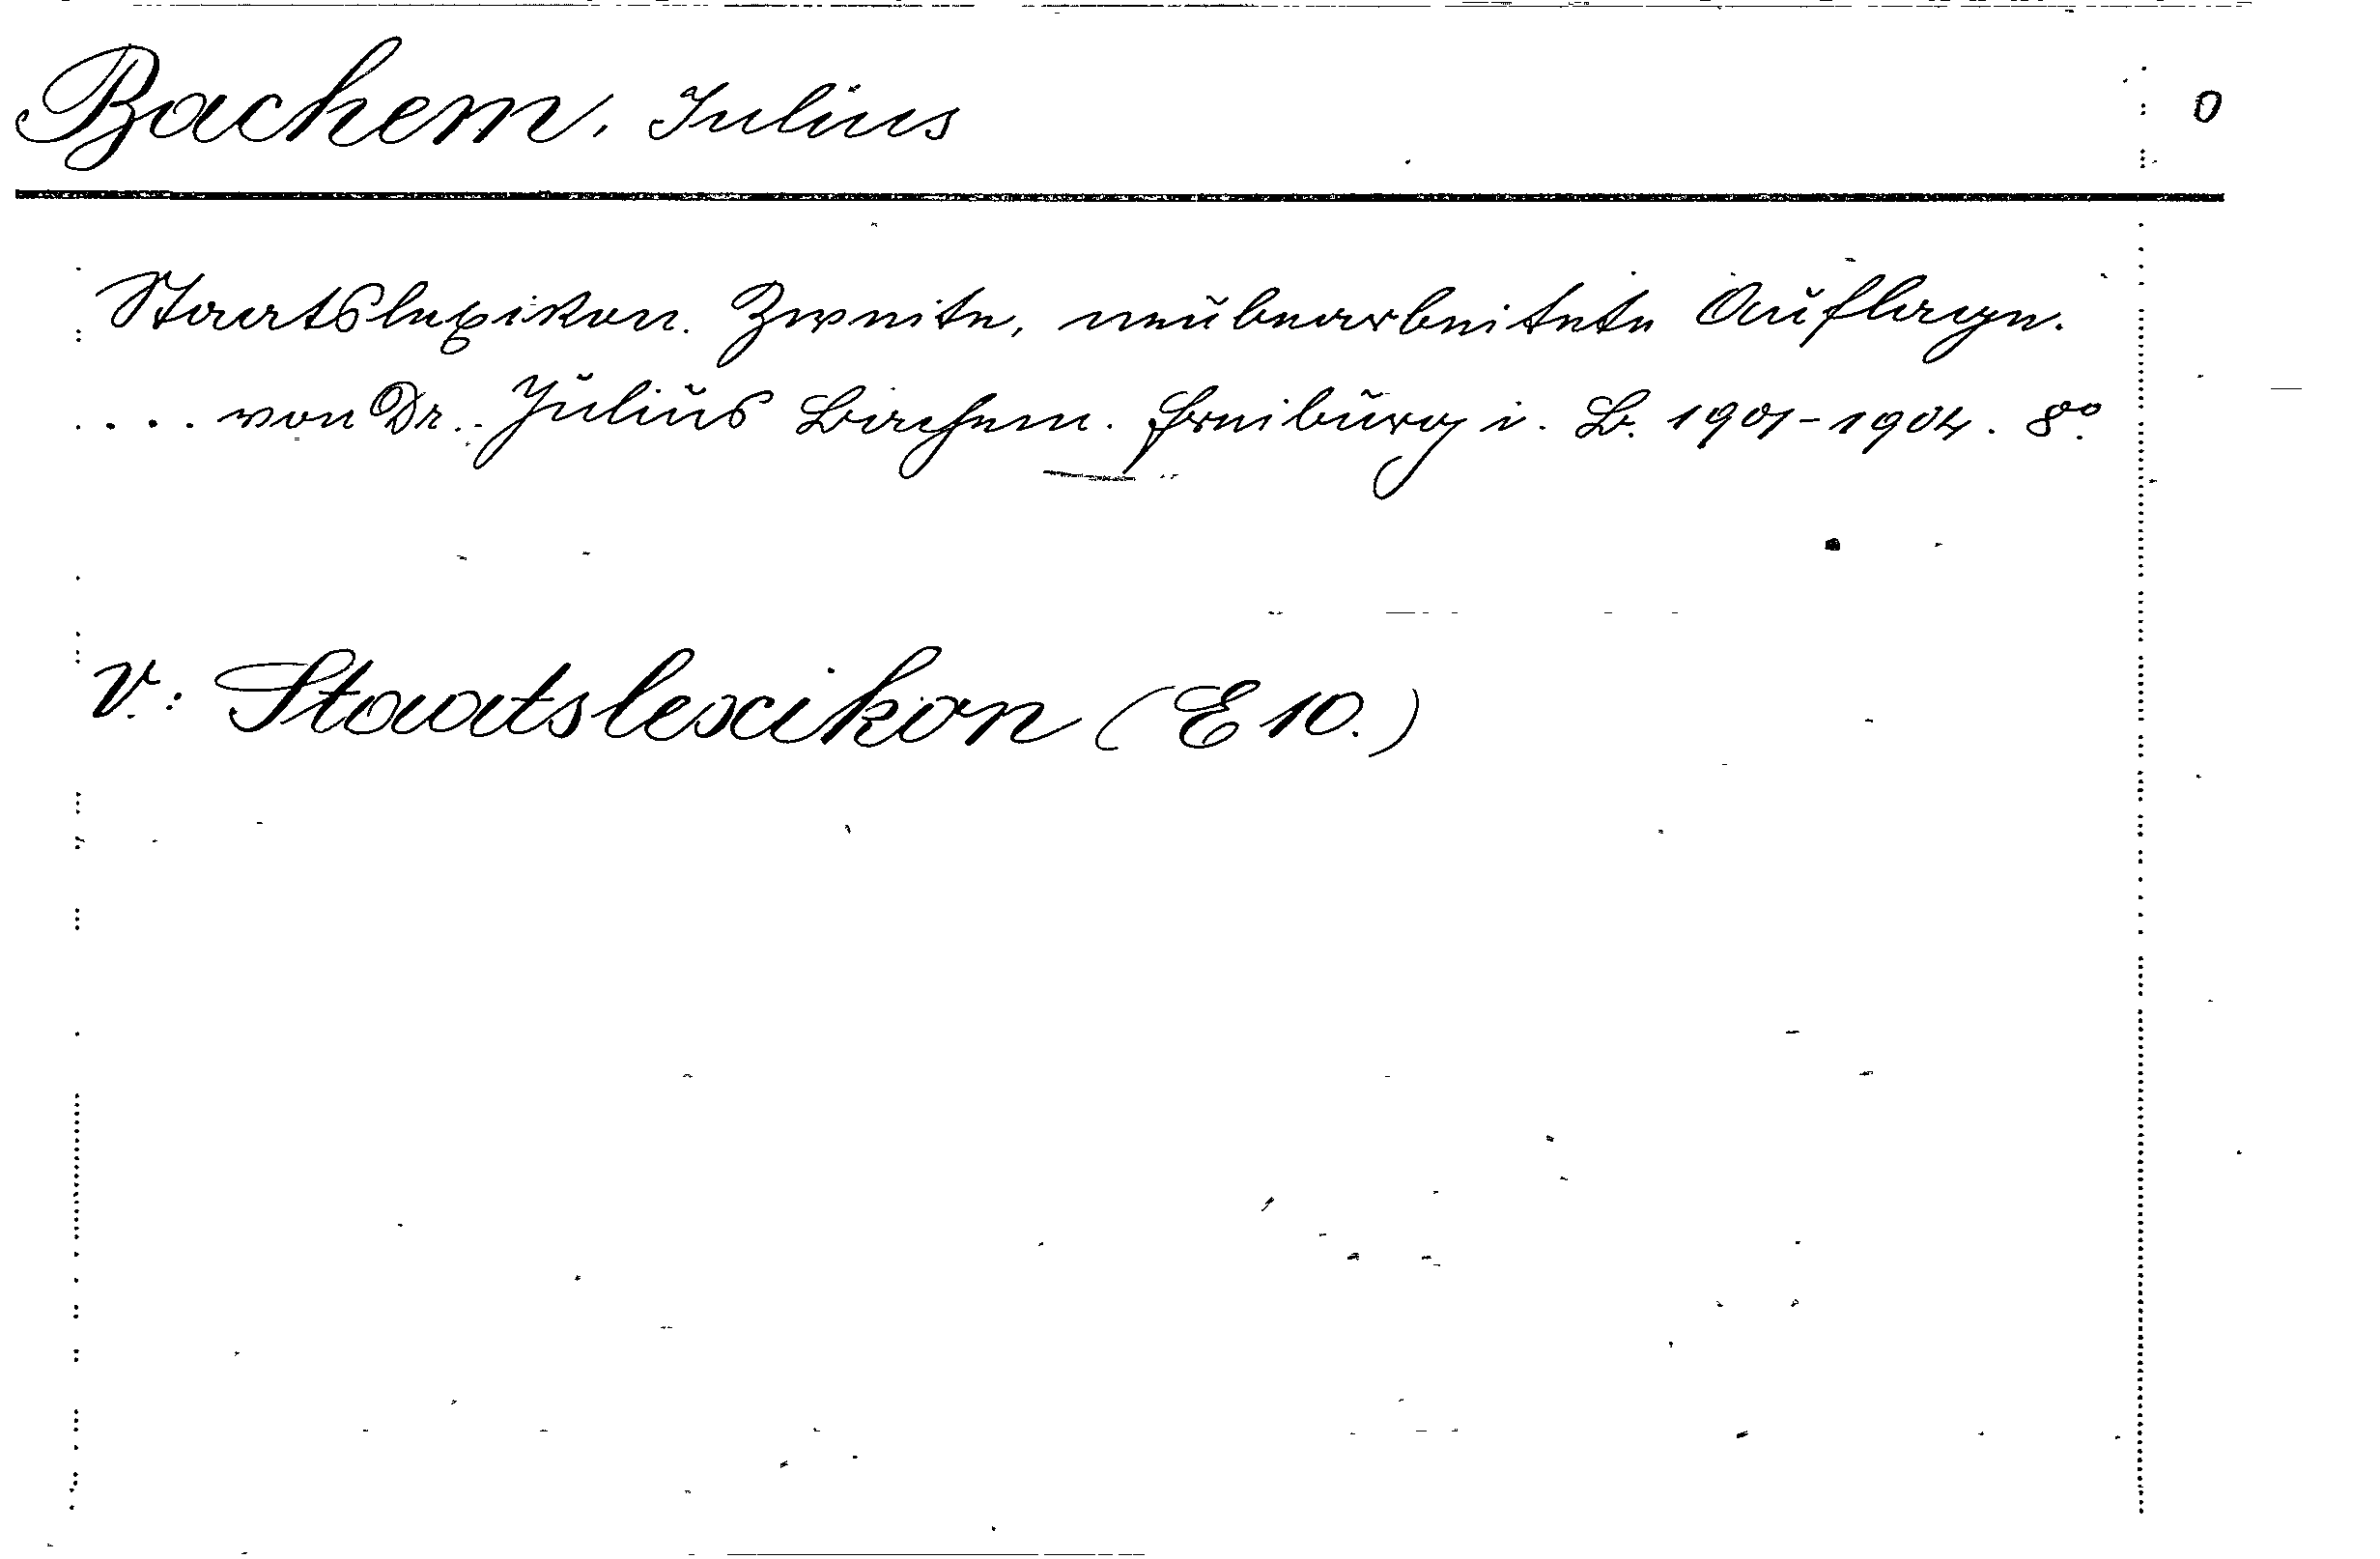 Bachem, Julius 0
Staatslexikon. Zweite, neubearbeitete Auflage.
.... von Dr. Julius Bachem. Freiburg i. B. 1901-1904. 8°.
V.: Staatslexikon (E 10.)